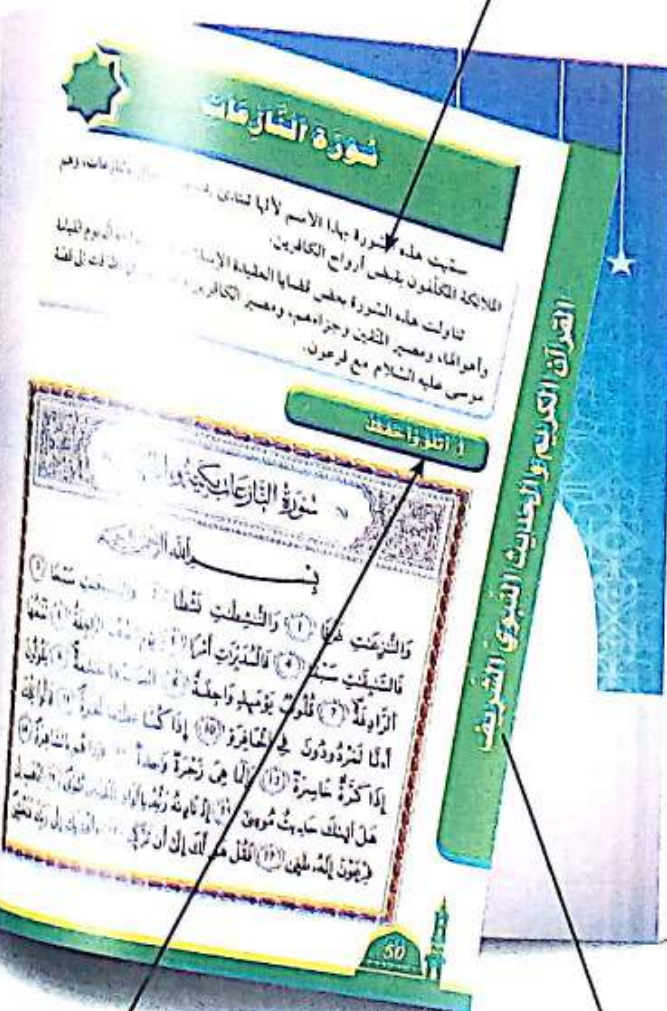 سُورَةُ النَّازِعَاتِ
سمّيت هذه السورة بهذا الاسم لأنّها تبتدئ وهم
الملائكة المكلّفون بقبض أرواح الكافرين.
تناولت هذه السّورة بعض قضايا العقيدة يوم القيامة
وأهوالها، ومصير المتّقين وجزاءهم، ومصير الكافرين إلى قصّة
موسى عليه السّلام مع فرعون.
أتلو وأحفظ
سُورَةُ النَّازِعَاتِ مَكِّيَّة
بِسْمِ اللَّهِ الرَّحْمَنِ الرَّحِيمِ
وَالنَّٰزِعَٰتِ (1) وَالنَّٰشِطَٰتِ نَشْطًا وَالسَّٰبِحَٰتِ سَبْحًا (3)
فَالسَّٰبِقَٰتِ سَبْقًا (4) فَالْمُدَبِّرَٰتِ أَمْرًا يَوْمَ تَرْجُفُ الرَّاجِفَةُ تَتْبَعُهَا
الرَّادِفَةُ (7) قُلُوبٌ يَوْمَئِذٍ وَاجِفَةٌ يَقُولُونَ
أَءِنَّا لَمَرْدُودُونَ فِي الْحَافِرَةِ (10) إِذَا كُنَّا قَالُوا تِلْكَ
إِذًا كَرَّةٌ خَاسِرَةٌ (12) هِيَ زَجْرَةٌ وَاحِدَةٌ فَإِذَا هُم بِالسَّاهِرَةِ
هَلْ أَتَىٰكَ حَدِيثُ مُوسَىٰ إِذْ نَادَىٰهُ رَبُّهُ بِالْوَادِ الْمُقَدَّسِ طُوًى
فِرْعَوْنَ إِنَّهُ طَغَىٰ فَقُلْ هَل لَّكَ إِلَىٰ أَن تَزَكَّىٰ وَأَهْدِيَكَ إِلَىٰ رَبِّكَ فَتَخْشَىٰ
50
القرآن الكريم والحديث النّبويّ الشّريف